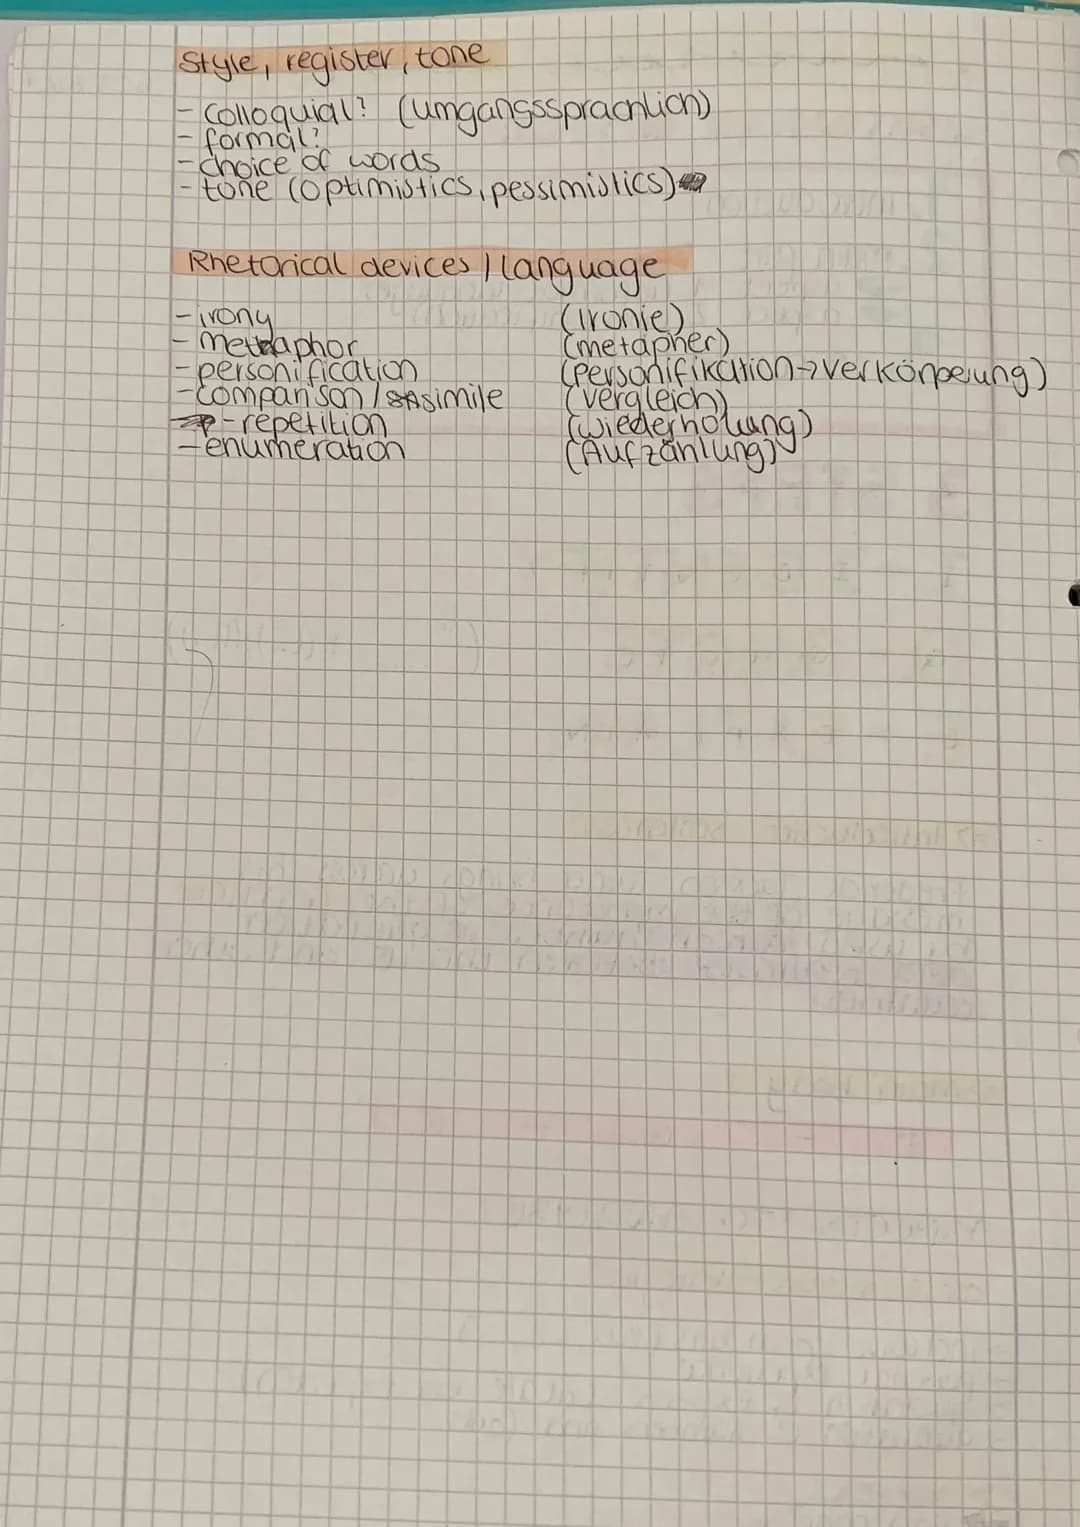 Style, register, tone
- Colloquial? (umgangssprachlich)
- formal?
- choice of words
- tone (optimistics, pessimistics)
Rhetorical devices / language
- irony (Ironie)
- metaphor (metapher)
- personification (Personifikation → verkörperung)
- comparison / simile (Vergleich)
- repetition (wiederholung)
- enumeration (Aufzählung)